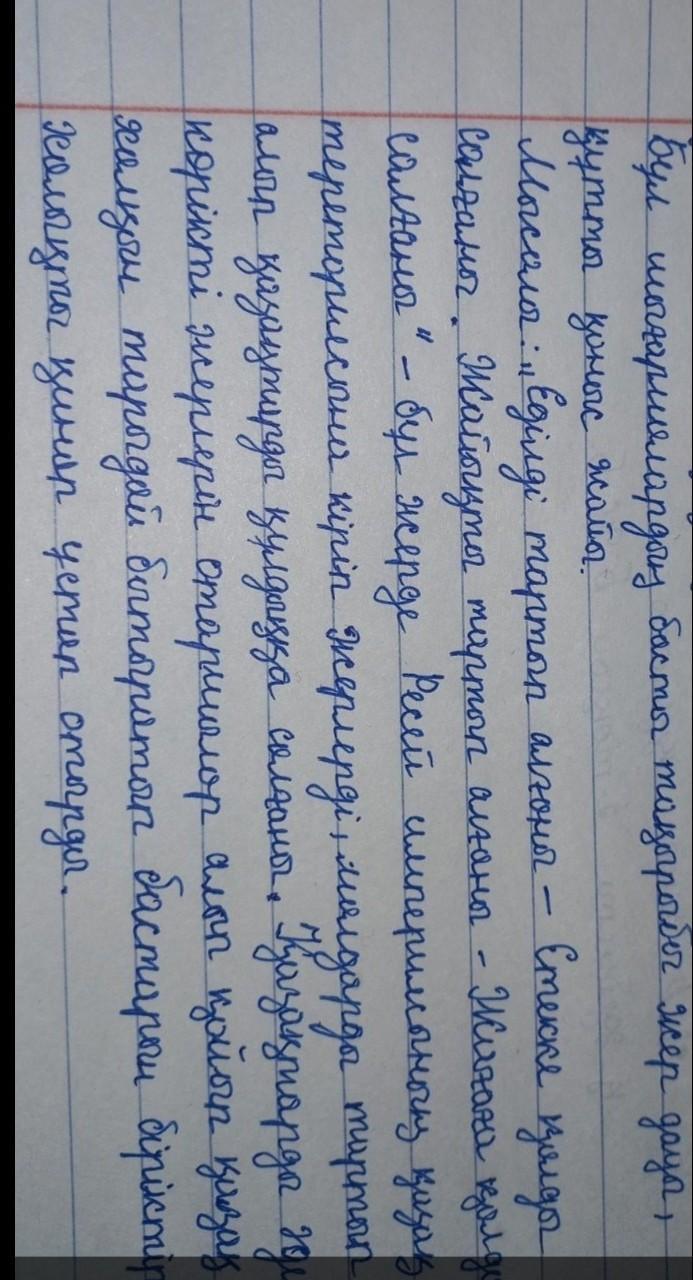 Бұл шығармалардың басты тақырыбы жер дауы,
құтты қоныс жайы.
Мысалы: „Еділді тартып алғаны – Етекке қолды
салғаны. Жайықты тартып алғаны - Жағаға қолды
салғаны" – бұл жерде Ресей империясының қазақ
территориясына кіріп жерлерді, малдарды тартып
алып қазақтарды құлдыққа салғаны. Қазақтарды
көрікті жерлерін отаршылар алып қойып қазақ
халқын тарыдай бытыратып бастарын біріктір
халықты қинап ұстап отырды.